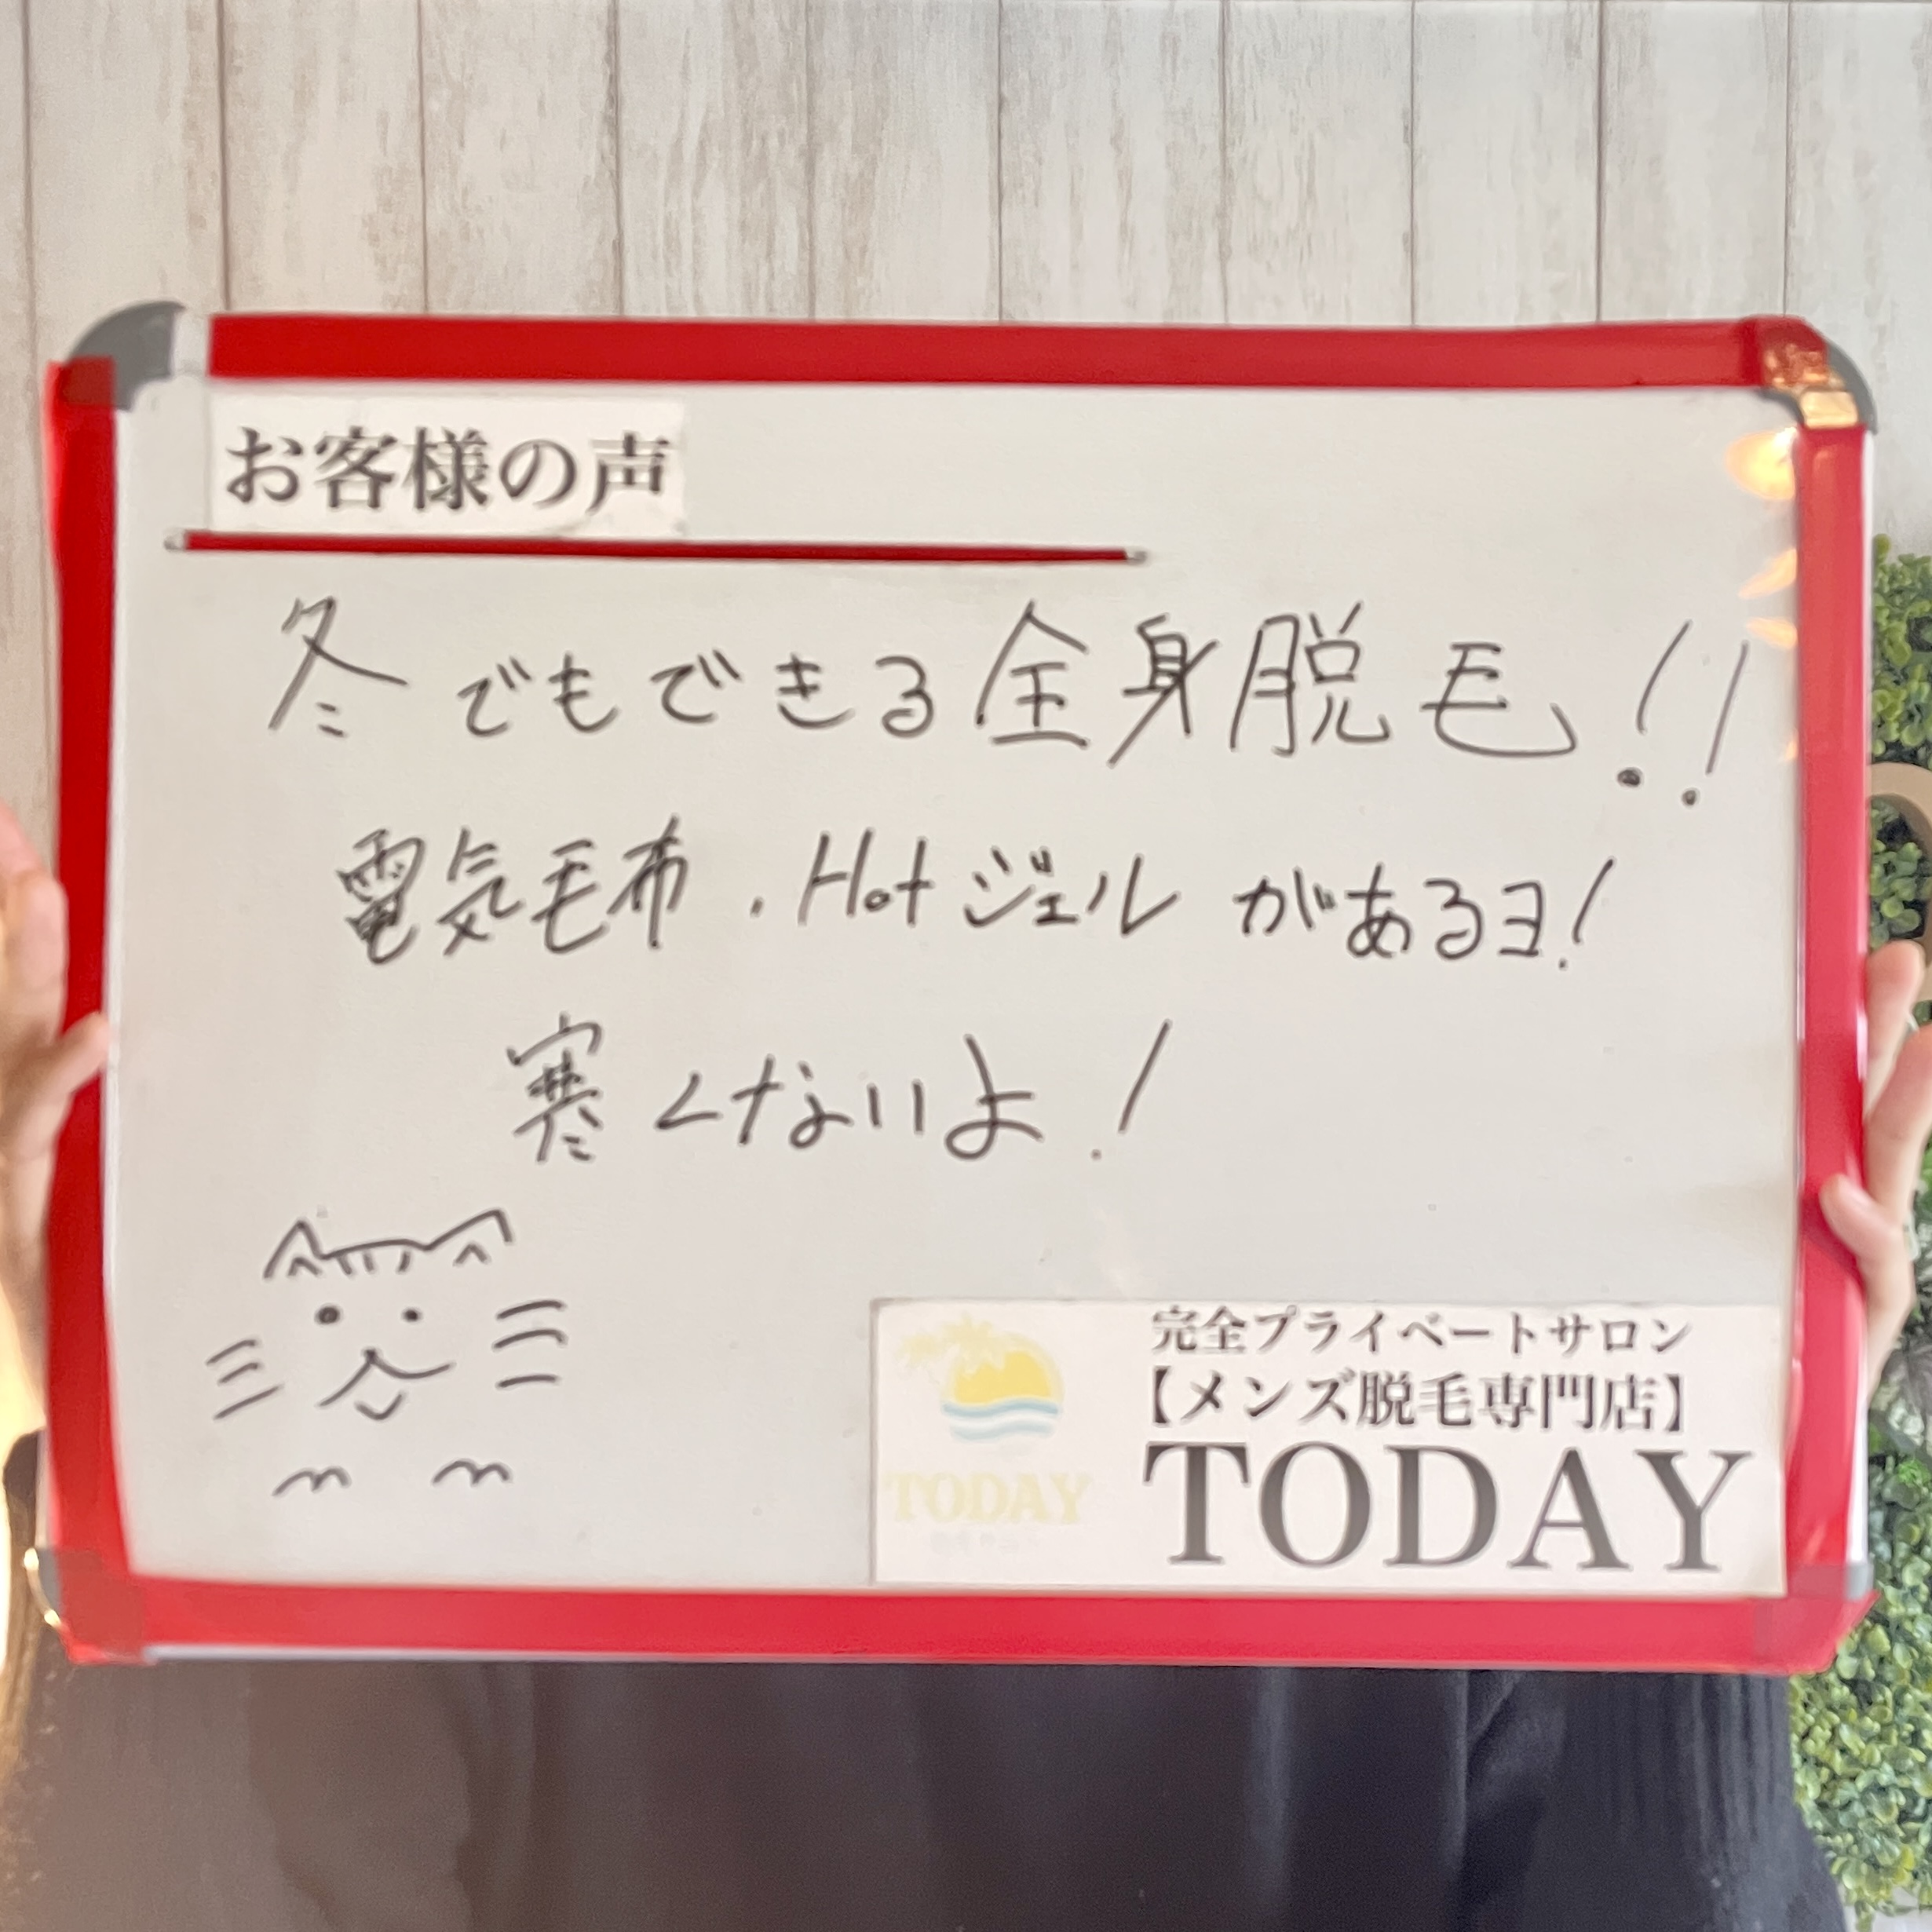 お客様の声
冬でもできる全身脱毛!!
電気毛布・Hotジェルがあるヨ!
寒くないよ!
完全プライベートサロン
【メンズ脱毛専門店】
TODAY
TODAY